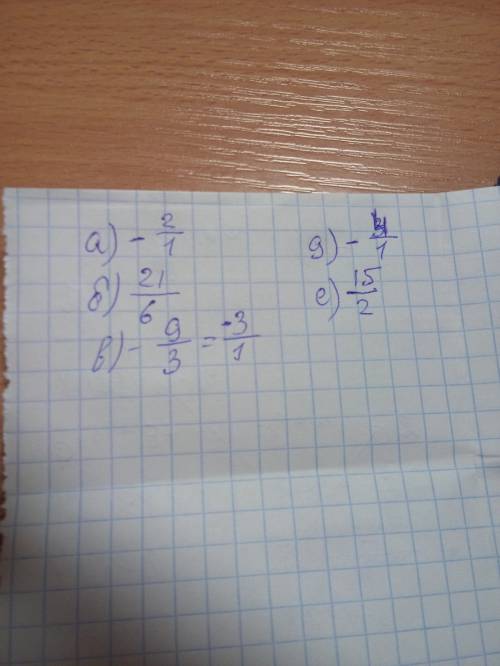 а) - 2/1
б) 21/6
в) - 9/3 = -3/1
д) - /1
е) 15/2